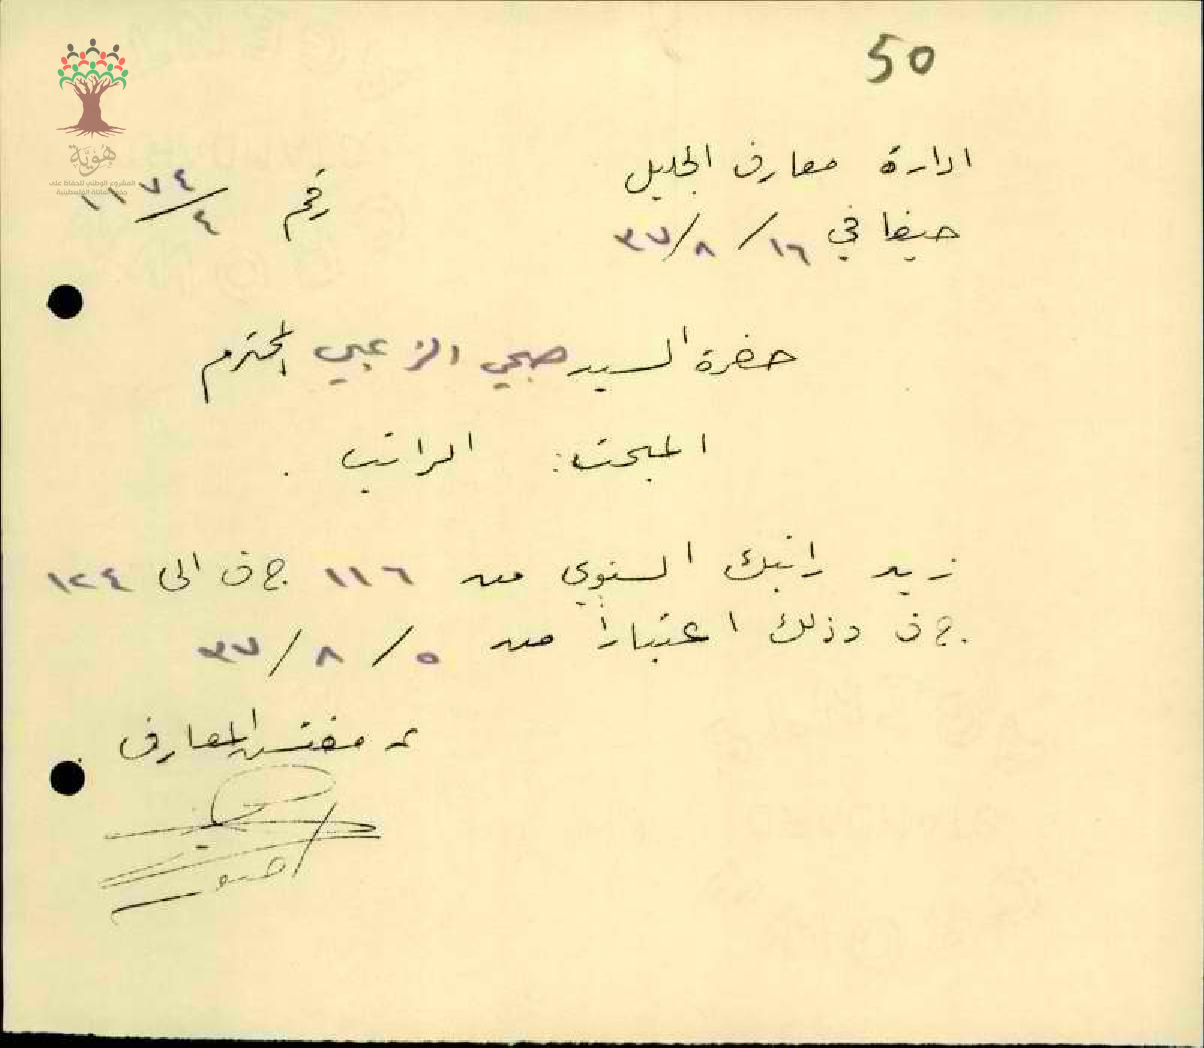 50
ادارة معارف الجليل
رقم ١١٧٤/٤
حيفا في ١٦/٨/٣٧
حضرة السيد صبحي الزعبي المحترم
المبحث: الراتب.
زيد راتبك السنوي من ١١٦ ج ف الى ١٢٤
ج ف وذلك اعتباراً من ٥/٨/٣٧
عـ مفتش المعارف
هُوِيَّة
المشروع الوطني للحفاظ على